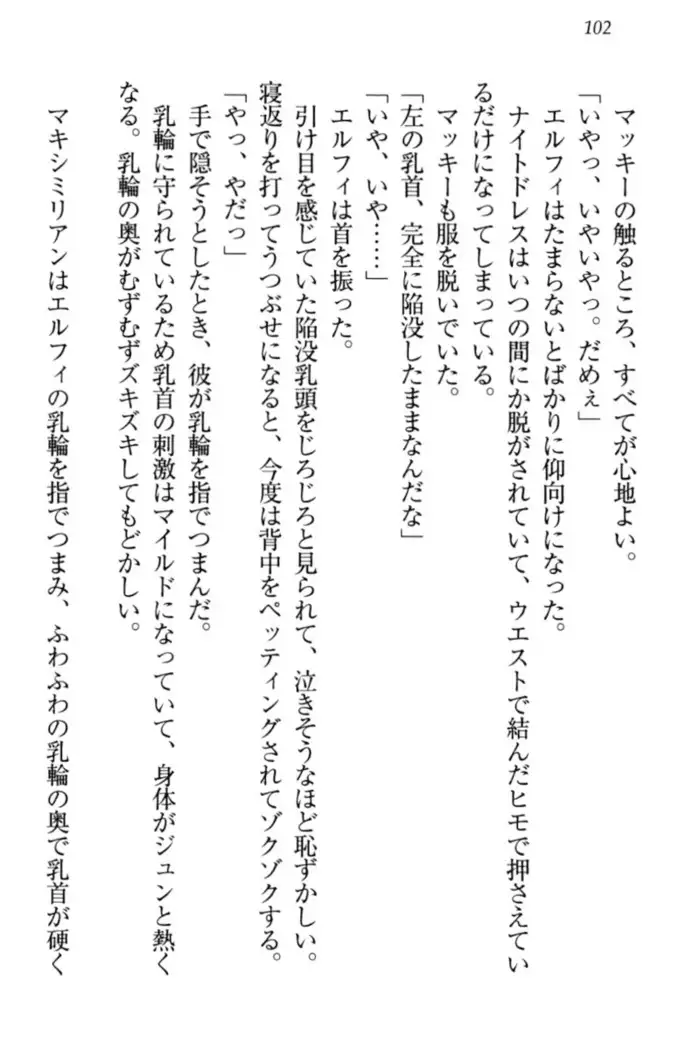 102
マッキーの触るところ、すべてが心地よい。
「いやっ、いやいやっ。だめぇ」
エルフィはたまらないとばかりに仰向けになった。
ナイトドレスはいつの間にか脱がされていて、ウエストで結んだヒモで押さえてい
るだけになってしまっている。
マッキーも服を脱いでいた。
「左の乳首、完全に陥没したままなんだな」
「いや、いや……」
エルフィは首を振った。
引け目を感じていた陥没乳頭をじろじろと見られて、泣きそうなほど恥ずかしい。
寝返りを打ってうつぶせになると、今度は背中をペッティングされてゾクゾクする。
「やっ、やだっ」
手で隠そうとしたとき、彼が乳輪を指でつまんだ。
乳輪に守られているため乳首の刺激はマイルドになっていて、身体がジュンと熱く
なる。乳輪の奥がむずむずズキズキしてもどかしい。
マキシミリアンはエルフィの乳輪を指でつまみ、ふわふわの乳輪の奥で乳首が硬く